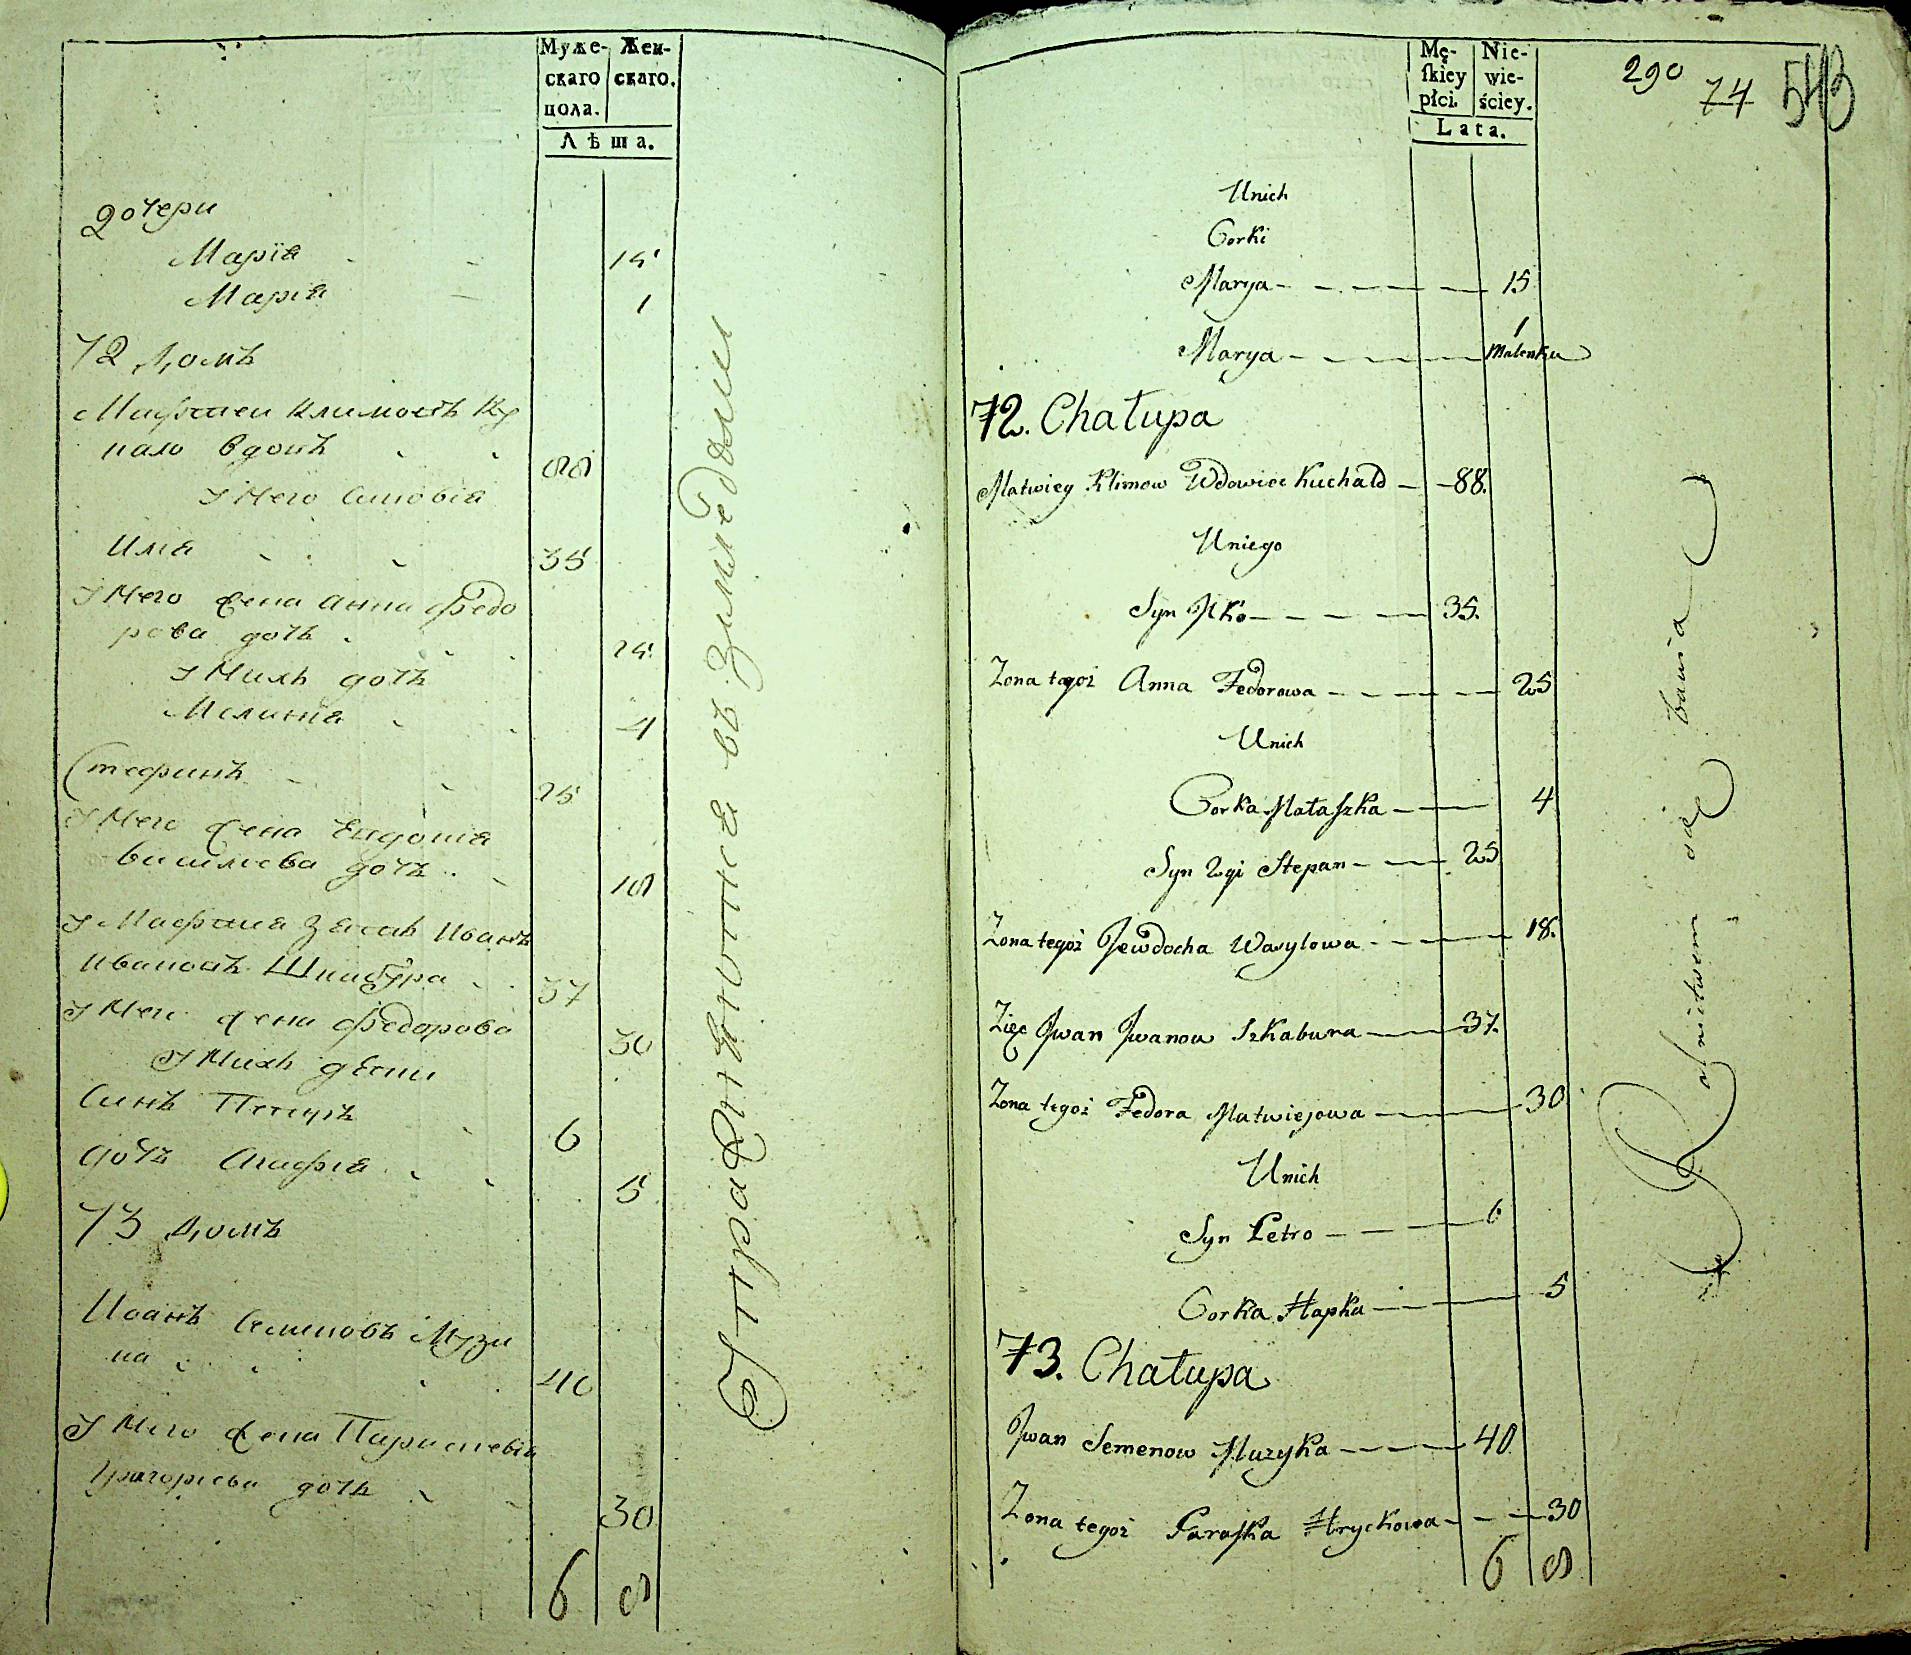 Муже-
скаго
пола.
Жен-
скаго.
Лѣта.
дочери
Марія 15
Марія 1
72 Домъ
Матфеи Климовъ Ку
хало вдовъ 88
У Него Синовья
Илія 35
У Него жена Анна Федо
рова дочь 25
У Нихъ дочь
Меланія 4
Стефанъ 25
У Него жена Евдокія
Василіева дочь 18
У Матфея Зять Иванъ
Ивановъ Шкабура 37
У Него жена Федорова 30
У Нихъ дѣти
Синъ Петръ 6
дочь Агафія 5
73 Домъ
Иванъ Семеновъ Музи
ка 40
У Него жена Параскевія
Григорієва дочь 30
6 8
въ Земледоли
Męskiey
płci.
Nie-
wie-
ściey.
Lata.
290 74 543
Unich
Corki
Marya 15
Marya 1 malenka
72. Chałupa
Matwiey Klimow Wdowiec Kuchało 88.
Uniego
Syn Ilko 35.
Zona tegoż Anna Fedorowa 25
Unich
Corka Małaszka 4
Syn 2gi Stepan 25
Zona tegoż Jewdocha Wasylowa 18.
Zięć Jwan Jwanow Szkabura 37.
Zona tegoż Fedora Matwiejowa 30
Unich
Syn Petro 6
Corka Hapka 5
73. Chałupa
Jwan Semenow Muzyka 40
Zona tegoż Paraska Hryckowa 30
6 8
Rolnictwem się bawia